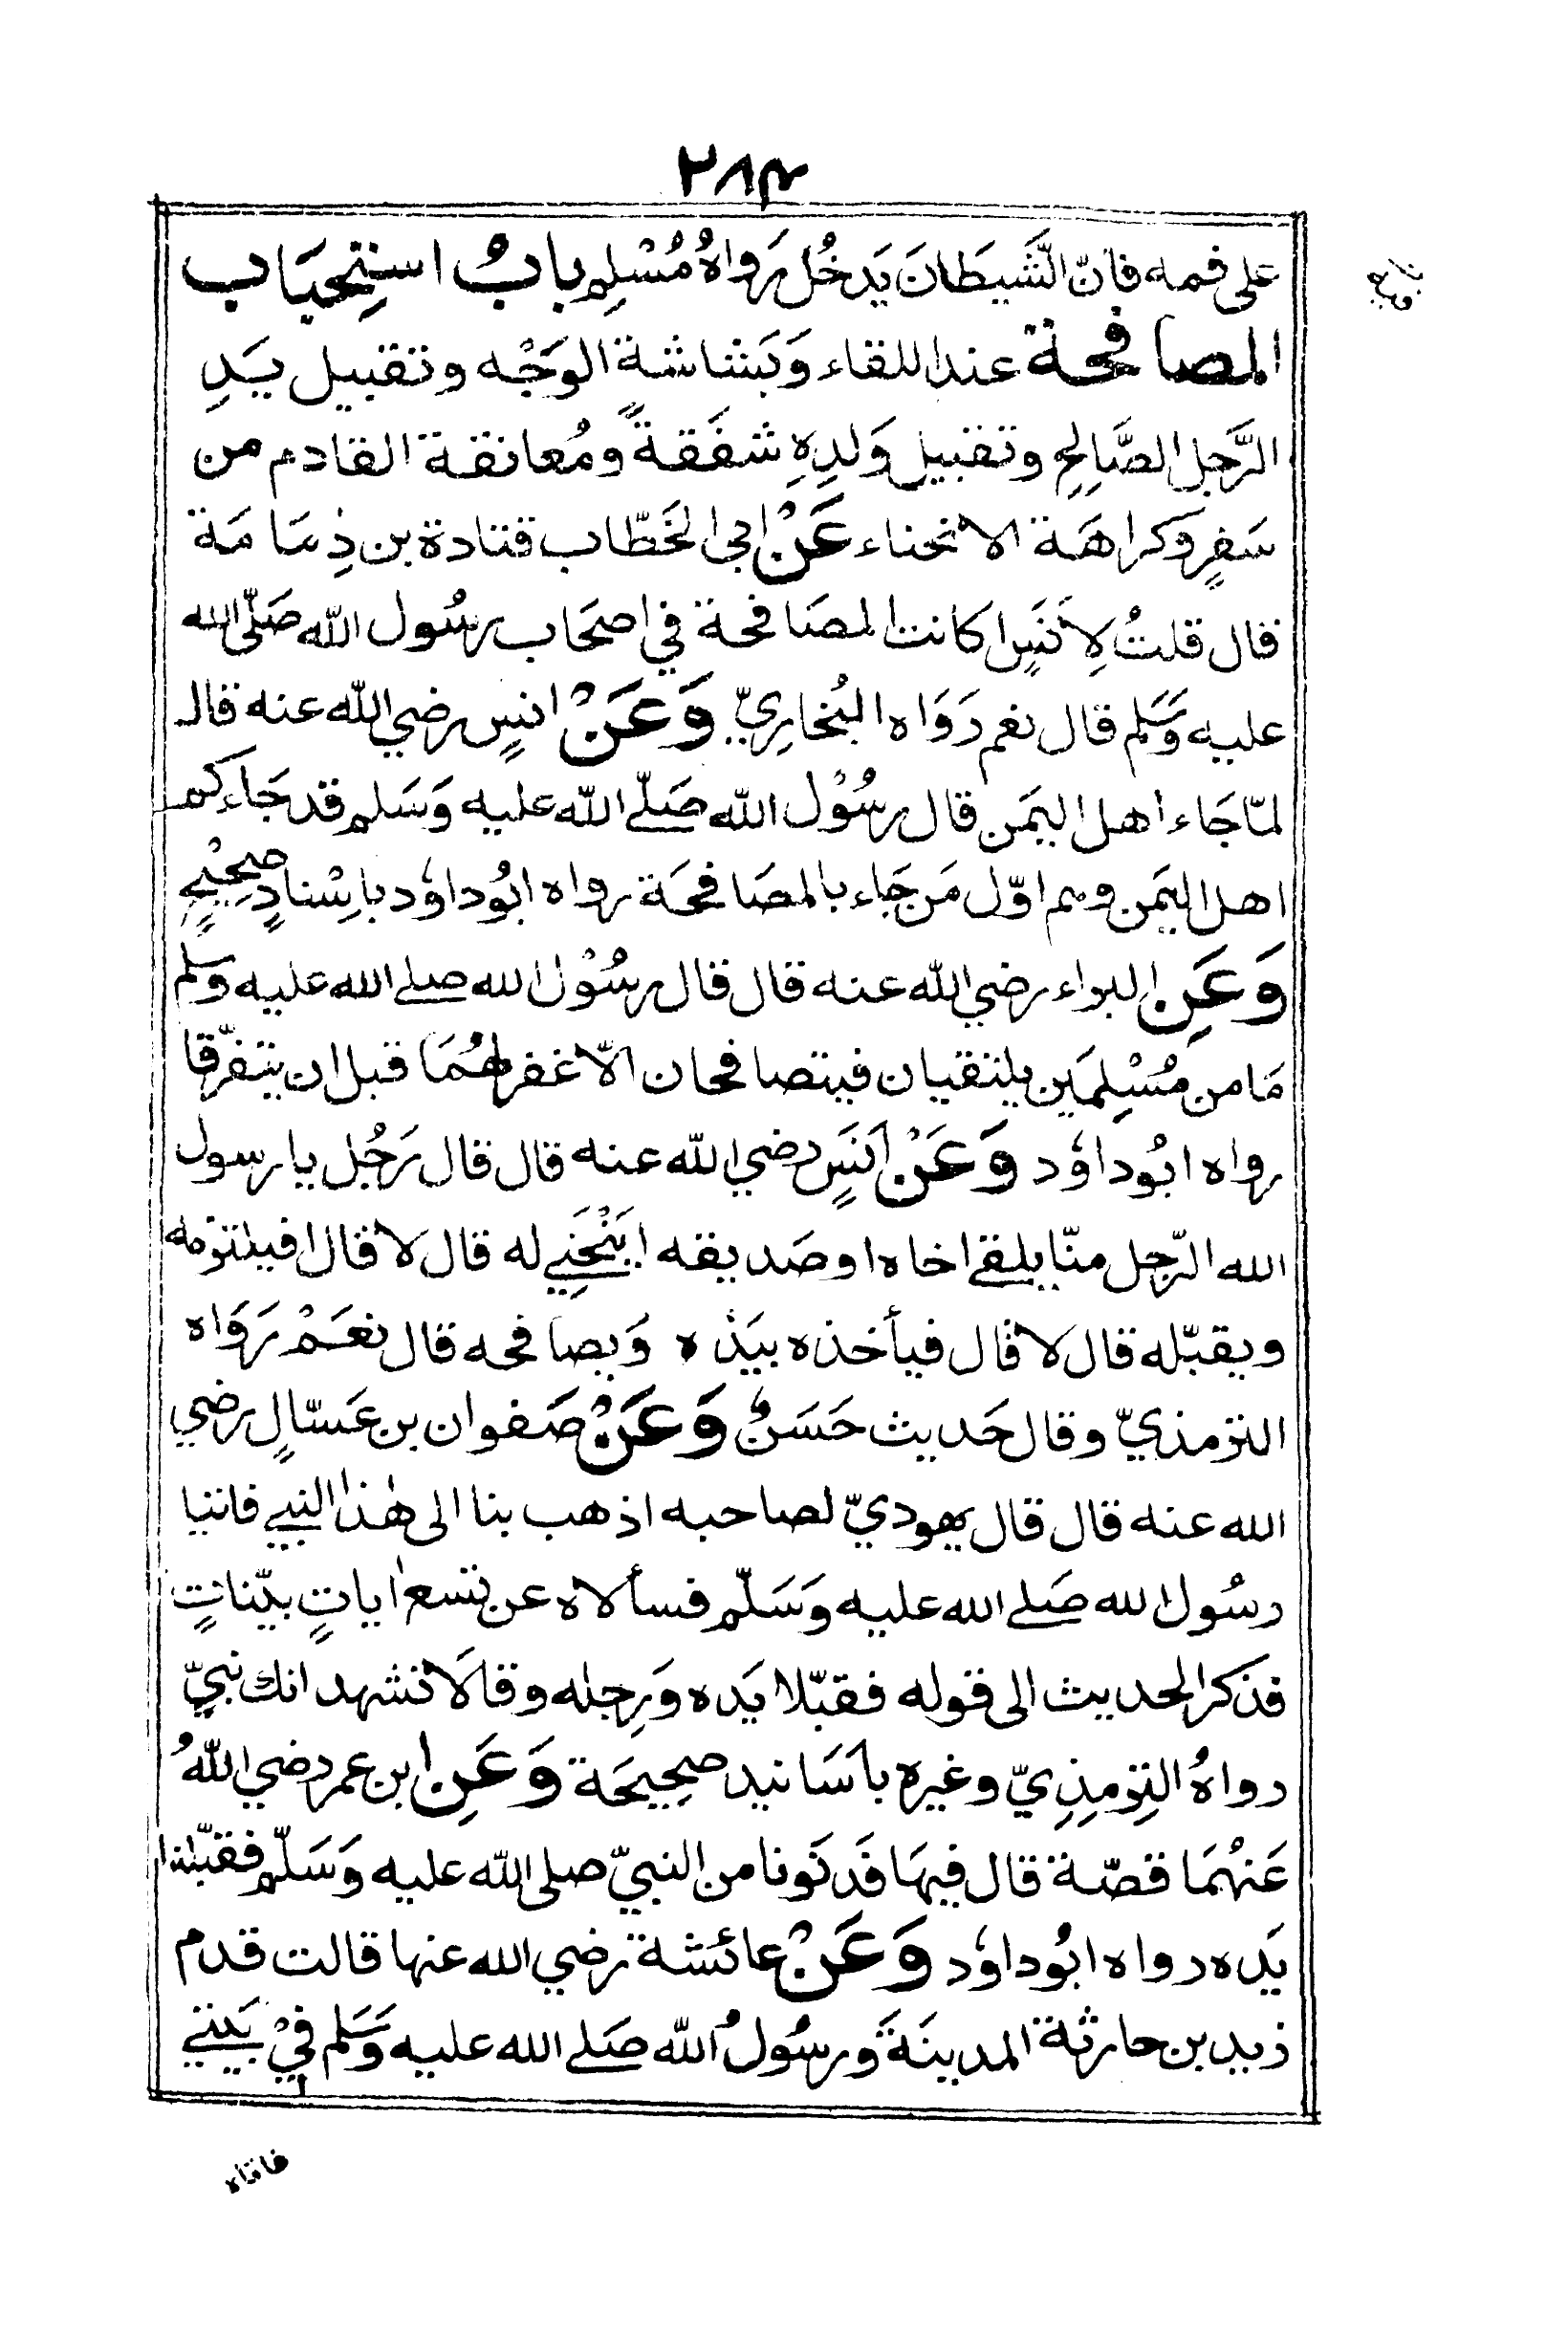 ٢٨٤
على فمه فانّ الشَّيطَانَ يَدخُل رَوَاهُ مُسْلِم بابُ استِحبَاب
المصافحة عند اللقاء وَبَشاشة الوَجْه وتقبيل يَدِ
الرَّجل الصَّالِحِ وتقبيل وَلدِهِ شفَقةً ومُعانقة القادم من
سَفرٍ وكراهَة الانحناء عَنْ ابي الخَطّاب قتادة بن دِعَامَة
قال قلتُ لِأَنَسٍ اكانت المصَافحة في اصحَاب رسُول الله صَلّى الله
عليه وَسَلم قال نعم رَوَاه البُخارِيّ وَعَنْ انسٍ رضي الله عنه قال
لمّا جَاء اهل اليَمَن قال رسُوْل الله صَلّے الله عليه وَسَلم قد جَاءكم
اهل اليَمَن وهم اوّل مَن جَاء بالمصَافحَة رواه ابُو داوٗد باِسْنادٍ صَحِيْحٍ
وَعَنِ البراء رضي الله عنه قال قال رسُوْل الله صلے الله عليه وسلم
مَا من مُسْلِمَين يلتقيان فيتصافحان الّا غفر لهُمَا قبل ان يتفرّقا
رواه ابُو داوٗد وَعَنْ اَنَسٍ رضي الله عنه قال قال رَجُل يا رسول
الله الرّجل منّا يلقے اخاه او صَديقه اينْحَنِے له قال لا قال افيلتزمه
ويقبّله قال لا قال فيأخذه بيَدْه وَيصافحه قال نعَمْ رَوَاه
الترمذيّ وقال حَديث حَسَنٌ وَعَنْ صَفوان بن عَسّالٍ رضي
الله عنه قال قال يهوديّ لصاحبه اذهب بنا الى هٰذا النبے فاتيا
رسُول الله صَلے الله عليه وَسَلّم فسألاه عن تسع اٰياتٍ بيّناتٍ
فذكر الحديث الى قوله فقبّلا يَده وَرِجله وقالَا نشهد انك نبيّ
رواهُ التِرْمِذِيّ وغيره بأسَانيد صحِيحَة وَعَنِ ابن عمر رضي اللهُ
عَنهُمَا قصّة قال فيهَا فَدَنَونا من النبيّ صلى الله عليه وَسَلّم فقبّلنا
يَده رواه ابُو داوٗد وَعَنْ عائشة رضي الله عنها قالت قدم
زيد بن حارثة المدينَةَ ورسُولُ الله صَلے الله عليه وَسَلم فيْ بَيتے
فاتاه